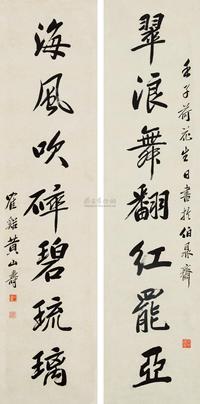 翠浪舞翻紅罷亞
壬子荷花生日書於伯鼎齋
海風吹碎碧琉璃
黃山壽